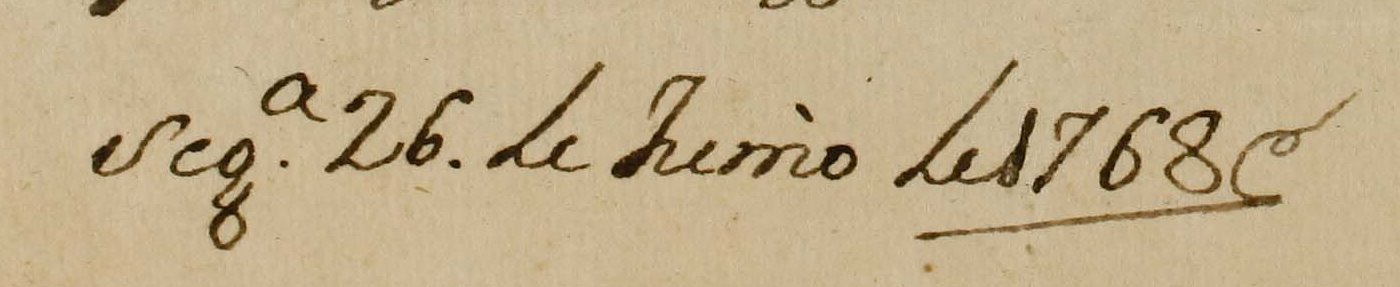 Seg.ª 26. de Junio de 1768